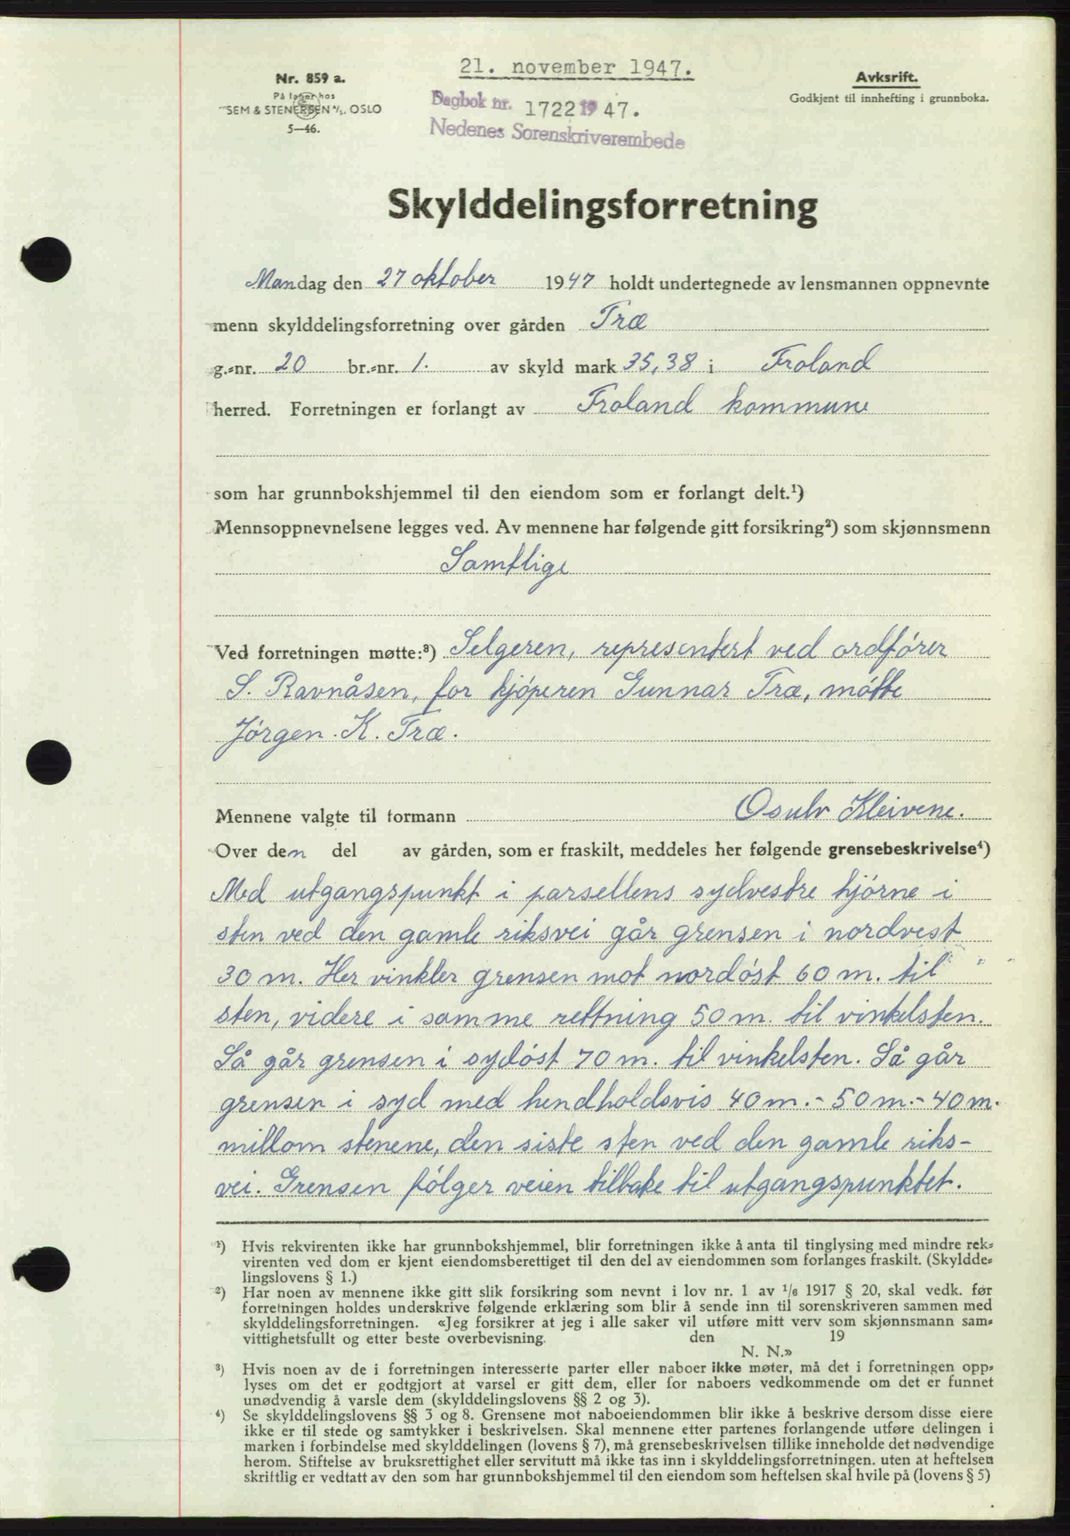 21. november 1947.
Nr. 859 a.
På lager hos
SEM & STENERSEN A/S. OSLO
5—46.
Dagbok nr. 1722 19 47.
Nedenes Sorenskriverembede
Avskrift.
Godkjent til innhefting i grunnboka.
Skylddelingsforretning
Mandag den 27 oktober 1947 holdt undertegnede av lensmannen oppnevnte
menn skylddelingsforretning over gården Træ
g.-nr. 20 br.-nr. 1. av skyld mark 35,38 i Froland
herred. Forretningen er forlangt av Froland kommune
som har grunnbokshjemmel til den eiendom som er forlangt delt.¹)
Mennsoppnevnelsene legges ved. Av mennene har følgende gitt forsikring²) som skjønnsmenn
Samtlige
Ved forretningen møtte:³) Selgeren, representert ved ordfører
S. Ravnåsen, for kjøperen Gunnar Træ, møtte
Jørgen K. Træ.
Mennene valgte til formann Osulv Kleivene.
Over den del av gården, som er fraskilt, meddeles her følgende grensebeskrivelse⁴)
Med utgangspunkt i parsellens sydvestre hjørne i
sten ved den gamle riksvei går grensen i nordvest
30 m. Her vinkler grensen mot nordøst 60 m. til
sten, videre i samme rettning 50 m. til vinkelsten.
Så går grensen i sydøst 70 m. til vinkelsten. Så går
grensen i syd med hendholdsvis 40 m. - 50 m. - 40 m.
millom stenene, den siste sten ved den gamle riks-
vei. Grensen følger veien tilbake til utgangspunktet.
¹) Hvis rekvirenten ikke har grunnbokshjemmel, blir forretningen ikke å anta til tinglysing med mindre rek-
virenten ved dom er kjent eiendomsberettiget til den del av eiendommen som forlanges fraskilt. (Skyldde-
lingslovens § 1.)
²) Har noen av mennene ikke gitt slik forsikring som nevnt i lov nr. 1 av 1/6 1917 § 20, skal vedk. før
forretningen holdes underskrive følgende erklæring som blir å sende inn til sorenskriveren sammen med
skylddelingsforretningen. «Jeg forsikrer at jeg i alle saker vil utføre mitt verv som skjønnsmann sam-
vittighetsfullt og etter beste overbevisning. den 19
N. N.»
³) Hvis noen av de i forretningen interesserte parter eller naboer ikke møter, må det i forretningen opp-
lyses om det er godtgjort at varsel er gitt dem, eller for naboers vedkommende om det er funnet
unødvendig å varsle dem (skylddelingslovens §§ 2 og 3).
⁴) Se skylddelingslovens §§ 3 og 8. Grensene mot naboeiendommen blir ikke å beskrive dersom disse eiere
ikke er til stede og samtykker i beskrivelsen. Skal mennene etter partenes forlangende utføre delingen i
marken i forbindelse med skylddelingen (lovens § 7), må grensebeskrivelsen tillike inneholde det nødvendige
herom. Stiftelse av bruksrettighet eller servitutt må ikke tas inn i skylddelingsforretningen, uten at heftelsen
skriftlig er vedtatt av den som har grunnbokshjemmel til den eiendom som heftelsen skal hvile på (lovens § 5)